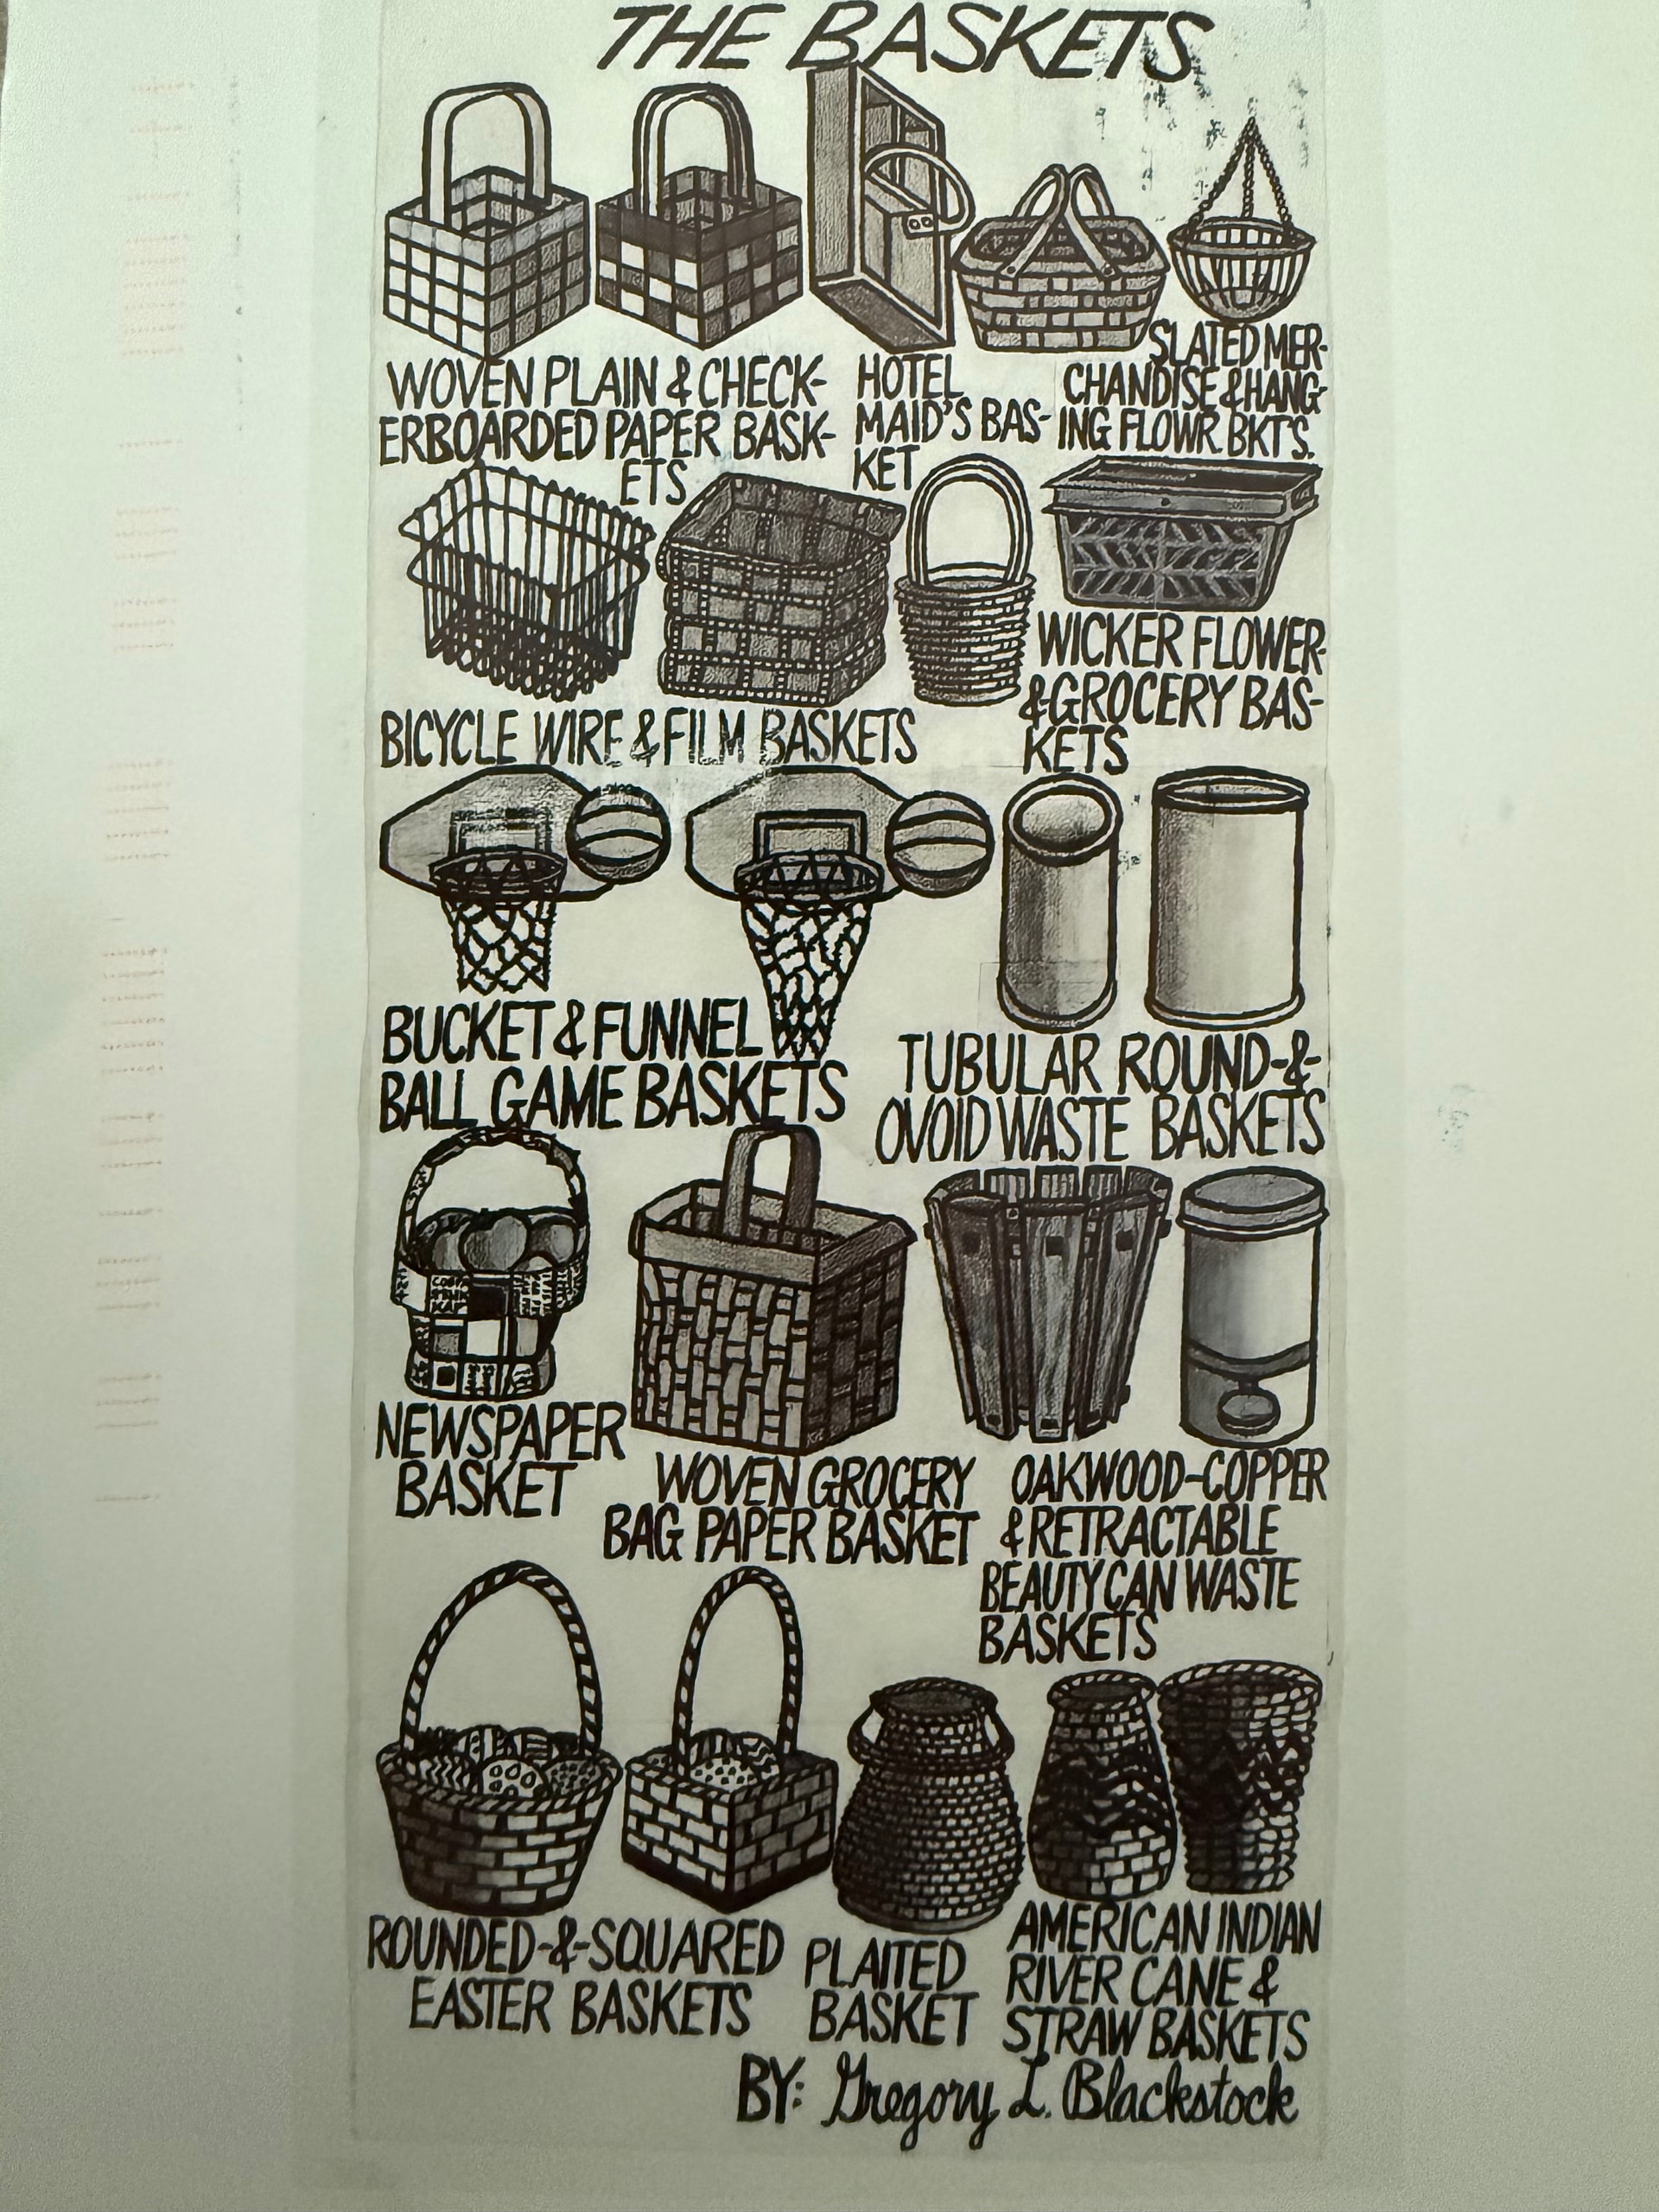 THE BASKETS
WOVEN PLAIN & CHECK-
ERBOARDED PAPER BASK-
ETS
HOTEL
MAID'S BAS-
KET
SLATED MER-
CHANDISE & HANG-
ING FLOWR. BKT'S.
BICYCLE WIRE & FILM BASKETS
WICKER FLOWER-
& GROCERY BAS-
KETS
BUCKET & FUNNEL
BALL GAME BASKETS
TUBULAR ROUND-&-
OVOID WASTE BASKETS
NEWSPAPER
BASKET
WOVEN GROCERY
BAG PAPER BASKET
OAKWOOD-COPPER
& RETRACTABLE
BEAUTY CAN WASTE
BASKETS
ROUNDED-&-SQUARED
EASTER BASKETS
PLAITED
BASKET
AMERICAN INDIAN
RIVER CANE &
STRAW BASKETS
BY: Gregory L. Blackstock